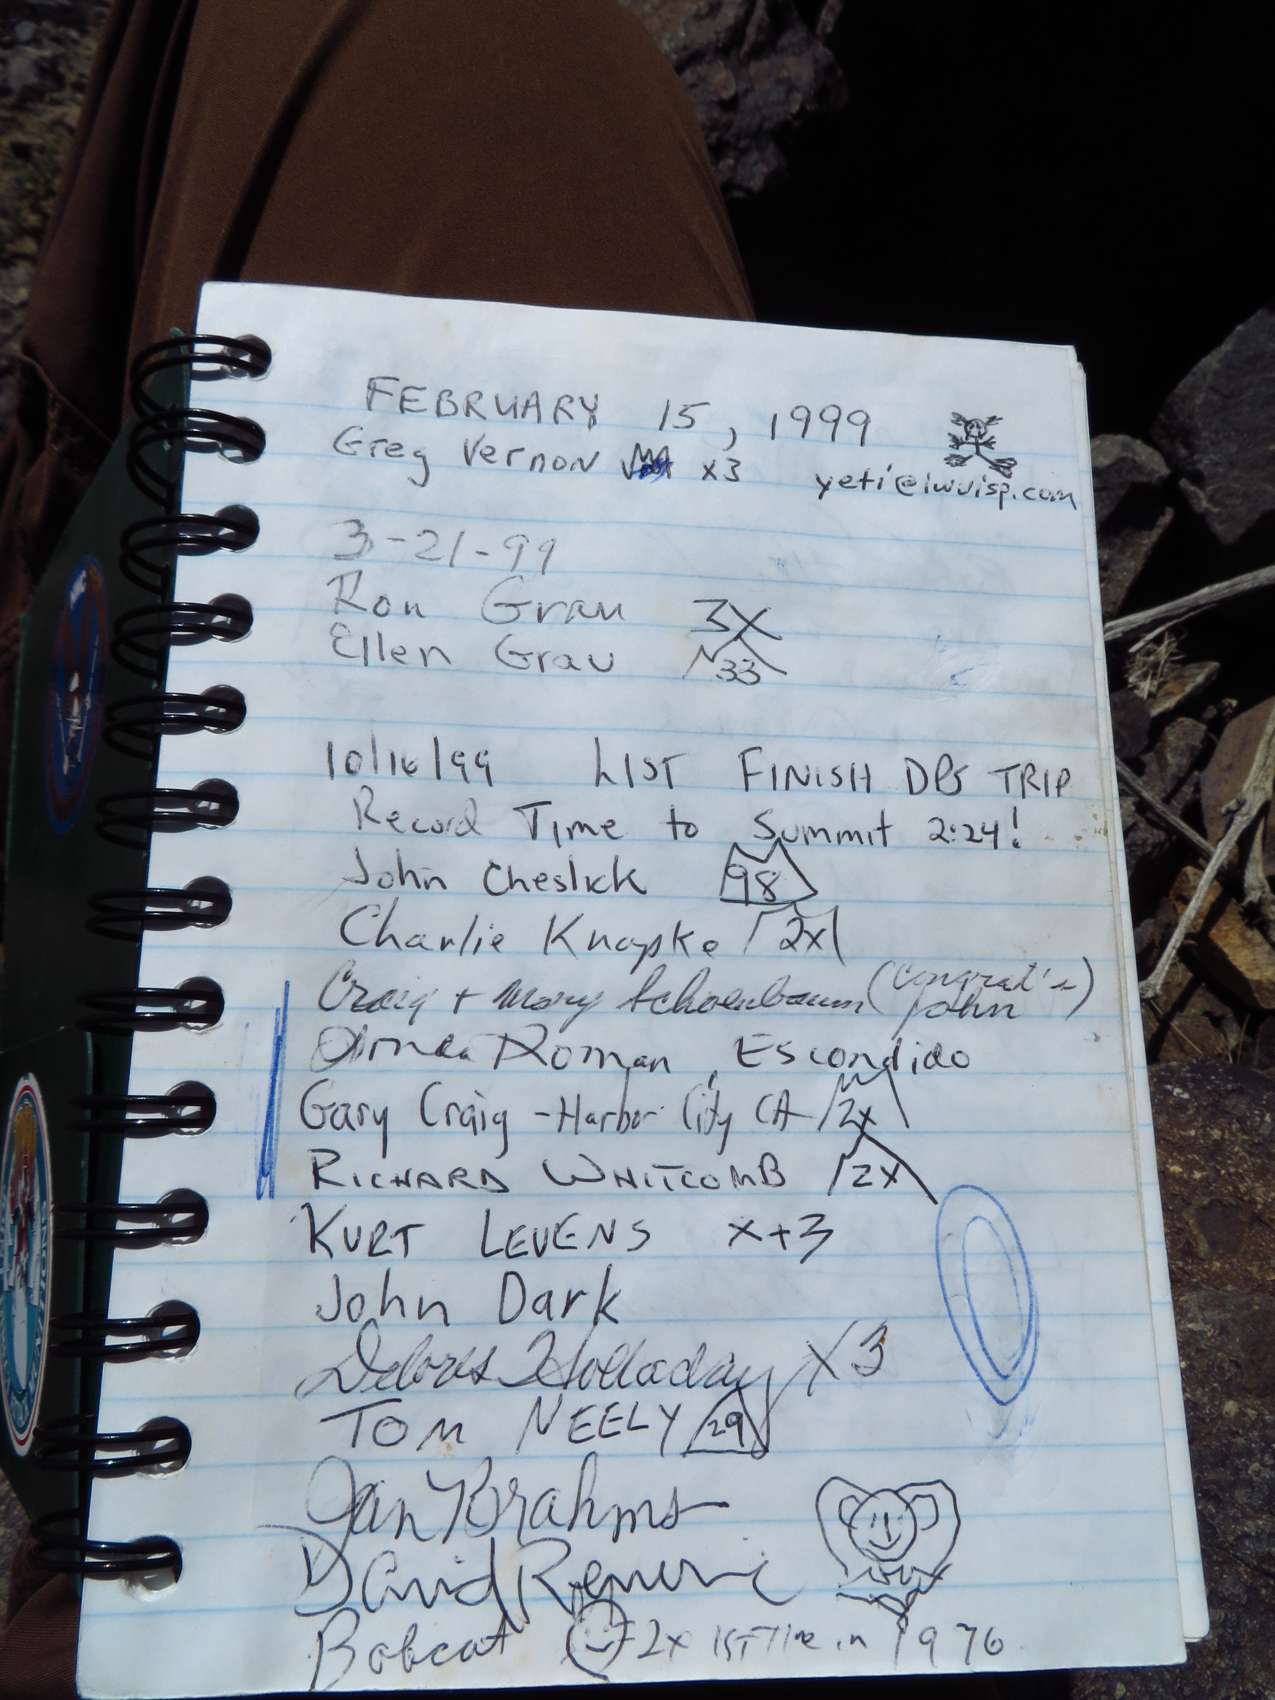 FEBRUARY 15, 1999
Greg Vernon x3 yeti@iwvisp.com
3-21-99
Ron Grau 3X
Ellen Grau 33
10/16/99 LIST FINISH DPS TRIP
Record Time to Summit 2:24!
John Cheslick 98
Charlie Knapke 2x
Craig + Mary Schoenbaum (Congrat's
John)
Roman, Escondido
Gary Craig - Harbor City CA 2x
RICHARD WHITCOMB 2x
KURT LEVENS x+3
John Dark
Delores Holladay X3
TOM NEELY 29
Jan Brahms
David
Bobcat 2x 1ST Time in 1976